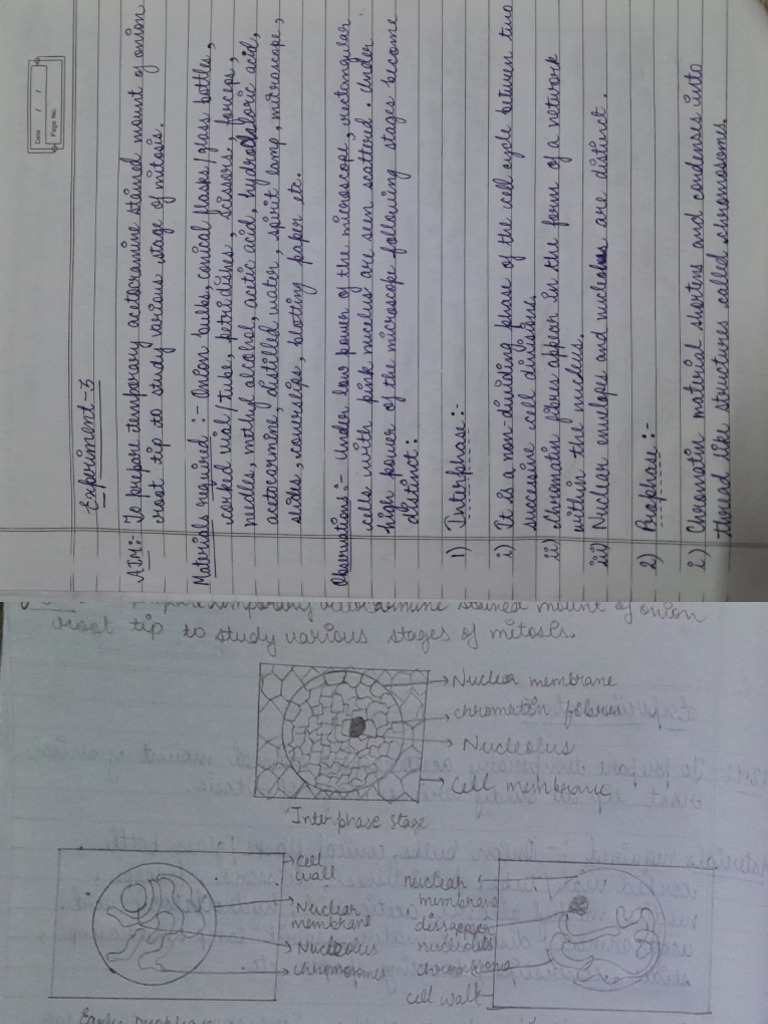 Date / /
Page No.
Experiment-3
AIM:- To prepare temporary acetocramine stained mount of onion
root tip to study various stage of mitosis.
Materials required :- Onion bulbs, conical flasks/glass bottles,
corked vial/tube, petridishes, scissors, forceps,
needles, methyl alcohol, acetic acid, hydrochloric acid,
acetocarmine, distilled water, spirit lamp, microscope,
slides, coverslips, blotting paper etc.
Observations:- Under low power of the microscope, rectangular
cells with pink nucelus are seen scattered. Under
high power of the microscope following stages become
distinct:
1) Interphase:-
i) It is a non-dividing phase of the cell cycle between two
successive cell divisions.
ii) Chromatin fibres appear in the form of a network
within the nucleus.
iii) Nuclear envelope and nucleolus are distinct.
2) Prophase:-
i) Chromatin material shortens and condenses into
thread like structures called chromosomes.
prepare temporary stained mount of onion
root tip to study various stages of mitosis.
Nuclear membrane
chromatin fibres
Nucleolus
Cell membrane
Interphase stage
Cell
wall
Nuclear
membrane
Nucleolus
chromosomes
nuclear
membrane
disappear
nucleolus
cell wall
Early prophase